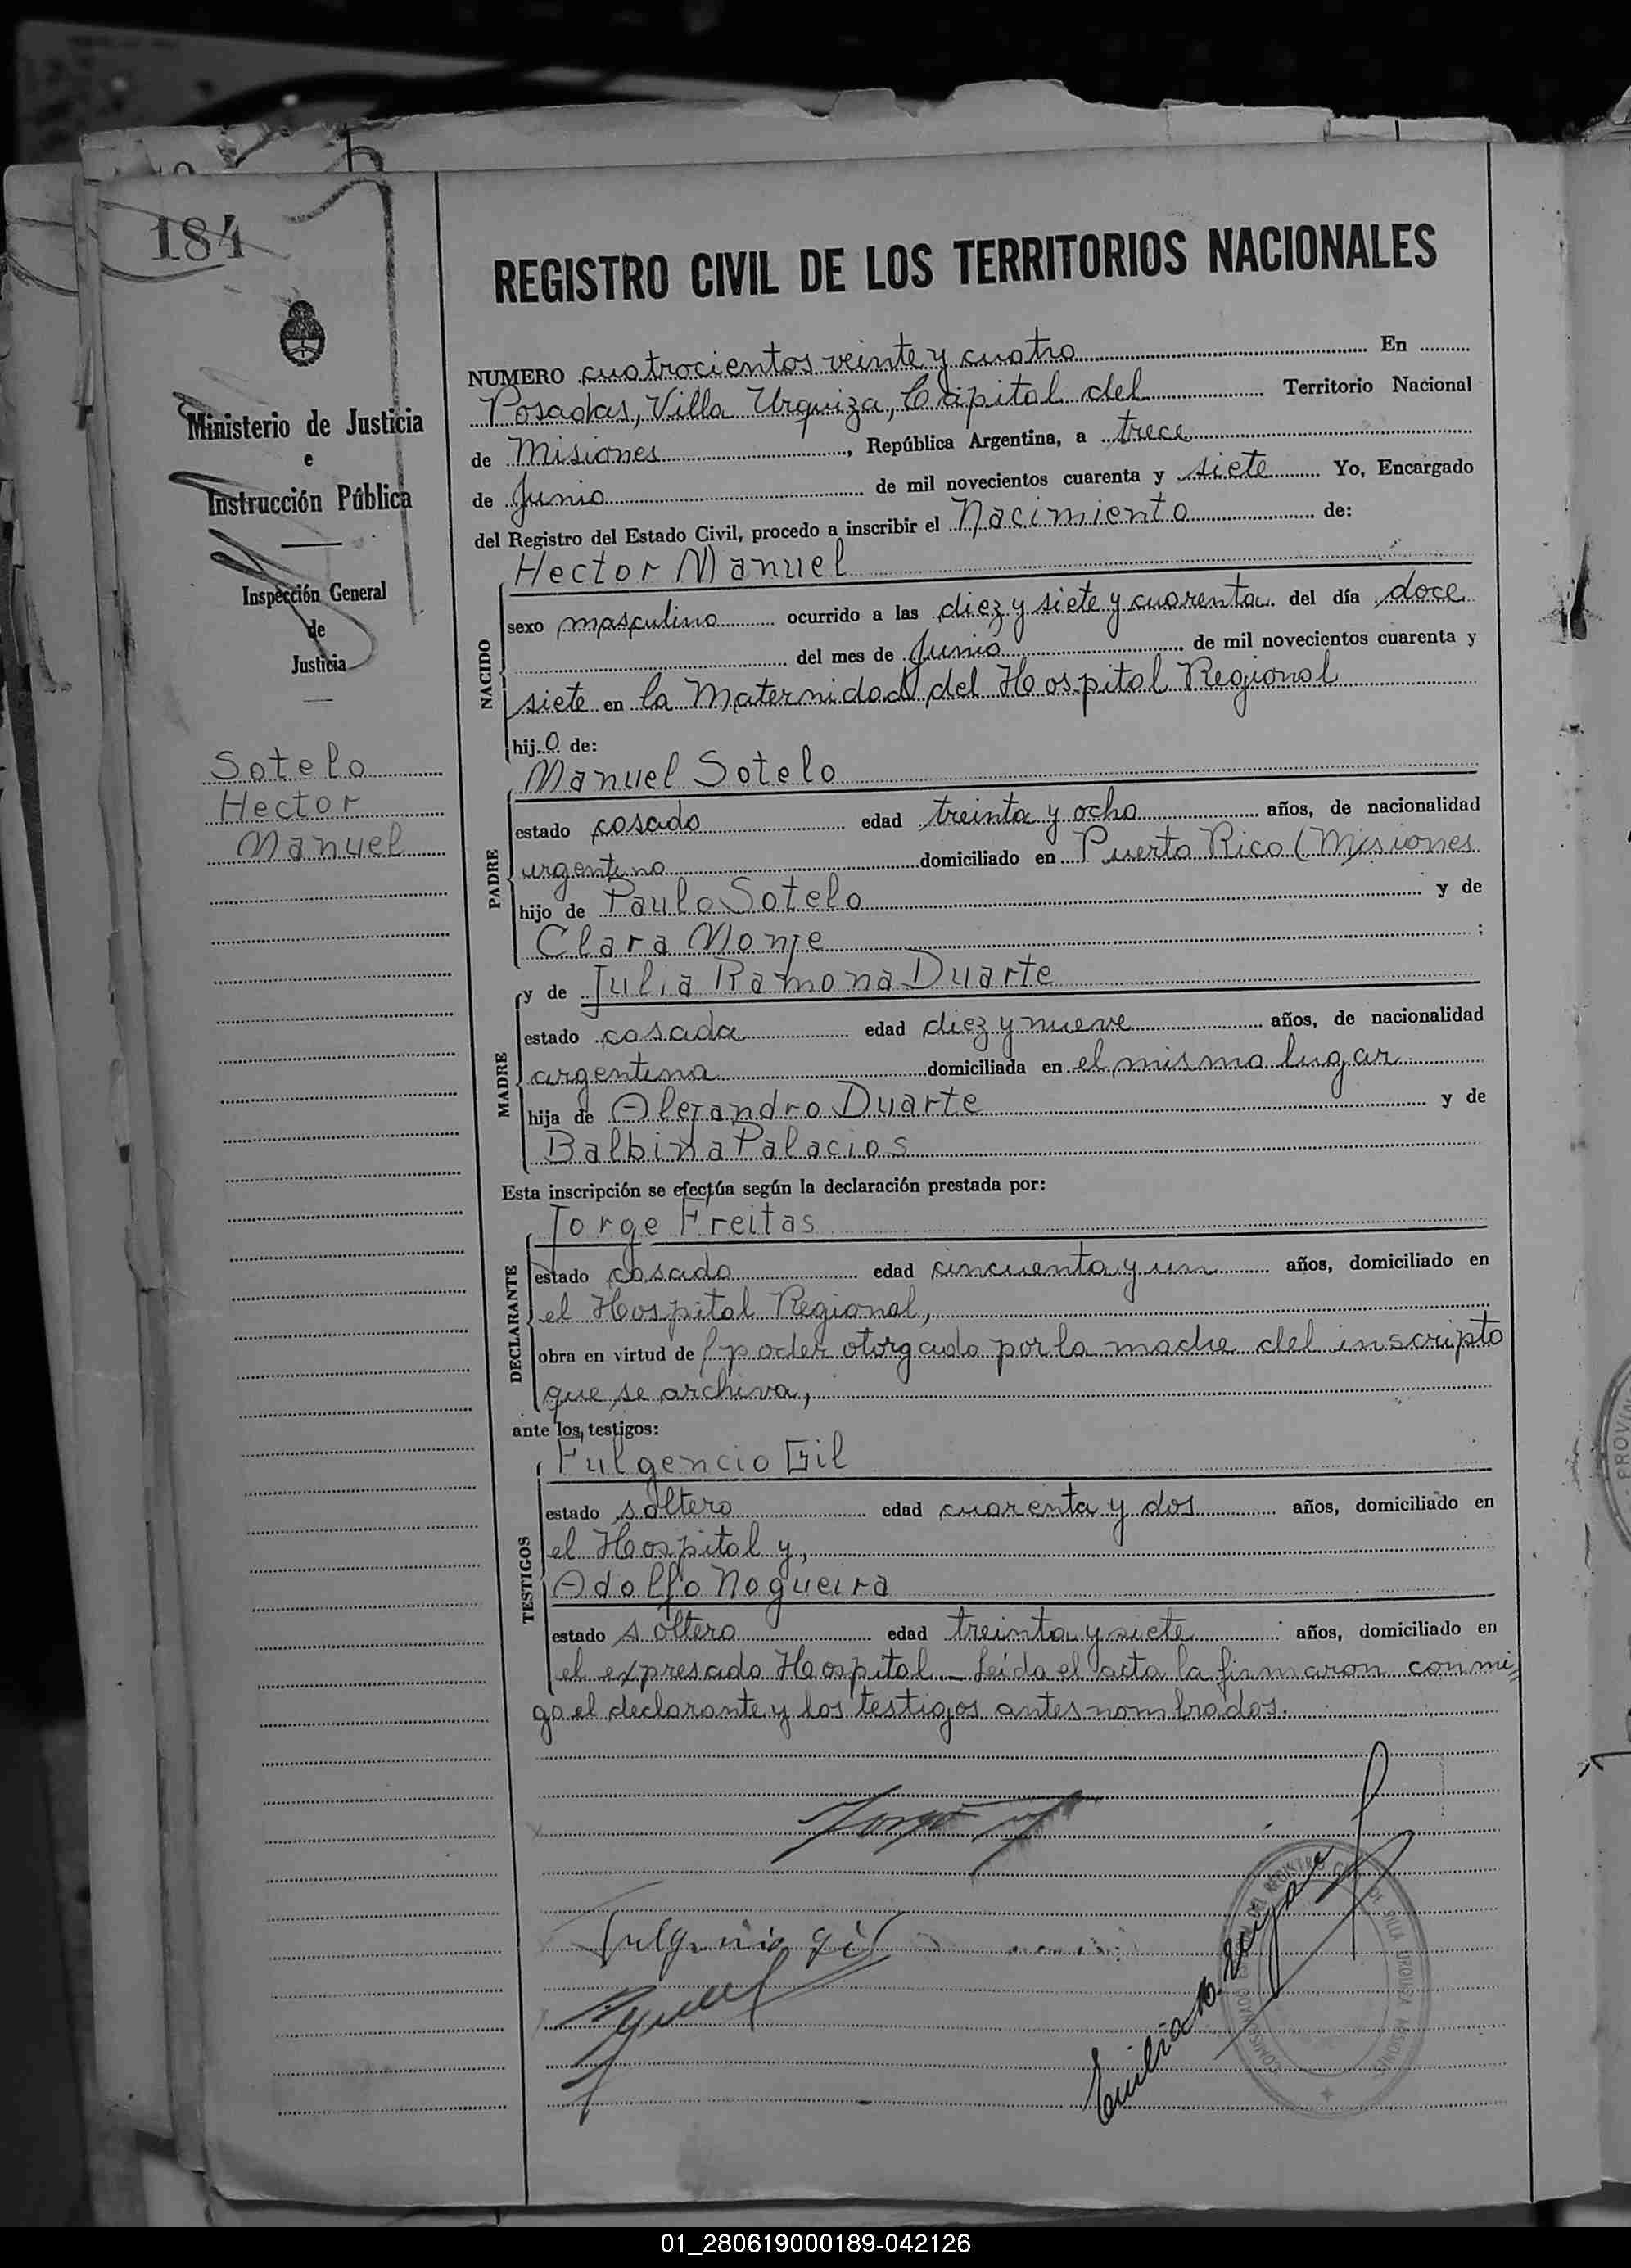 184
Ministerio de Justicia
e
Instrucción Pública
Inspección General
de
Justicia
Sotelo
Hector
Manuel
REGISTRO CIVIL DE LOS TERRITORIOS NACIONALES
NUMERO cuatrocientos veinte y cuatro En
Posadas, Villa Urquiza, Capital del Territorio Nacional
de Misiones, República Argentina, a trece
de Junio de mil novecientos cuarenta y siete Yo, Encargado
del Registro del Estado Civil, procedo a inscribir el Nacimiento de:
NACIDO
Hector Manuel
sexo masculino ocurrido a las diez y siete y cuarenta del día doce
del mes de Junio de mil novecientos cuarenta y
siete en la Maternidad del Hospital Regional
hijo de:
PADRE
Manuel Sotelo
estado casado edad treinta y ocho años, de nacionalidad
argentino domiciliado en Puerto Rico (Misiones
hijo de Paulo Sotelo y de
Clara Monje ;
MADRE
y de Julia Ramona Duarte
estado casada edad diez y nueve años, de nacionalidad
argentina domiciliada en el mismo lugar
hija de Alejandro Duarte y de
Balbina Palacios
Esta inscripción se efectúa según la declaración prestada por:
DECLARANTE
Jorge Freitas
estado casado edad cincuenta y un años, domiciliado en
el Hospital Regional,
obra en virtud de poder otorgado por la madre del inscripto
que se archiva,
ante los testigos:
TESTIGOS
Fulgencio Gil
estado soltero edad cuarenta y dos años, domiciliado en
el Hospital y,
Adolfo Nogueira
estado soltero edad treinta y siete años, domiciliado en
el expresado Hospital. Leída el acta la firmaron conmi=
go el declarante y los testigos antes nombrados.
Jorge
Fulgencio Gil
REGISTRO CIVIL DE VILLA URQUIZA MISIONES
PROVIN
01_280619000189-042126